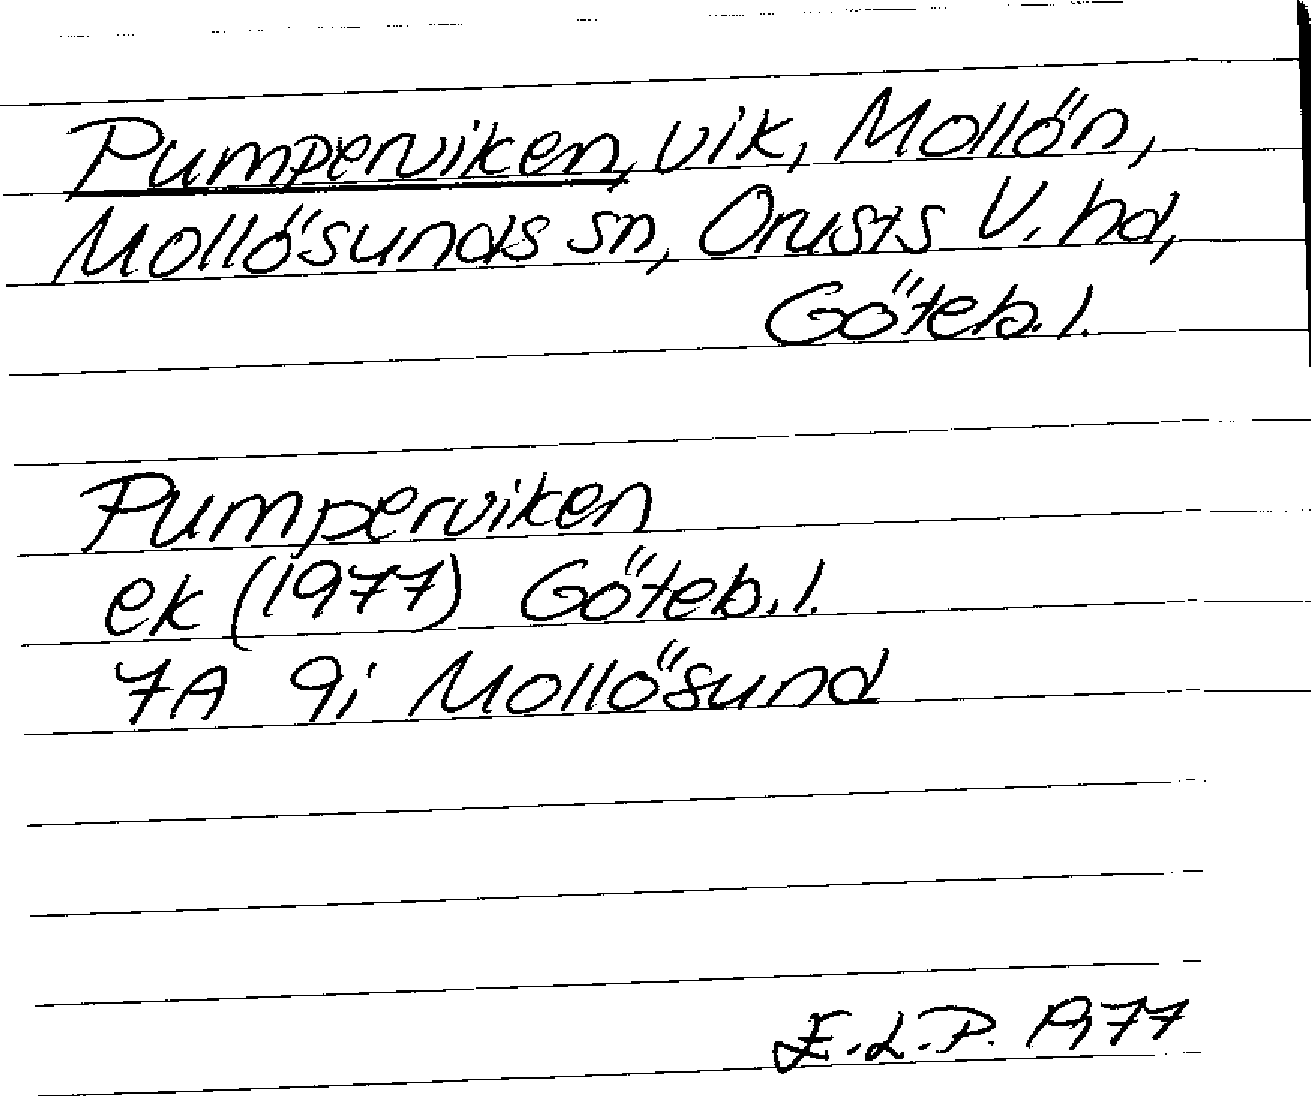 Pumperviken, vik, Mollön,
Mollösunds sn, Orusts V. hd,
Göteb. l.
Pumperviken
ek (1977) Göteb. l.
7A 9i Mollösund
E.L.P. 1977